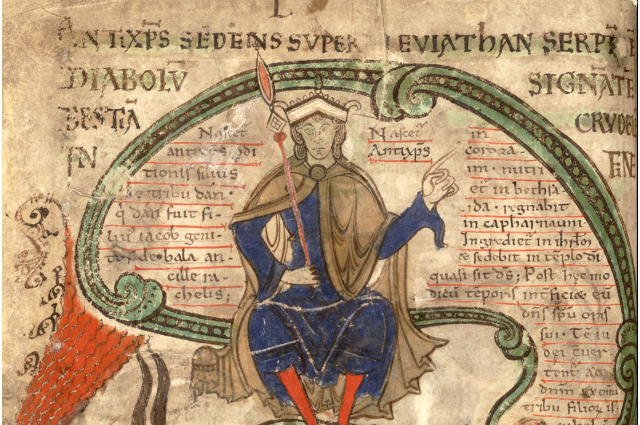 ANTIXP̄S SEDENS SUPER LEVIATHAN SERPE
DIABOLV̄ SIGNANTE
BESTIA CRVDE
IN FINE
Nascet̄
antixp̄s
tionis filius
de tribu dan.
q̄ dan fuit fi-
lius iacob geni-
tus de bala an-
cille ra-
chelis;
Nascet̄
Antixp̄s
in
coroza-
im. nutri
et̄ in bethsa-
ida. regnabit
in capharnaum.
Ingrediet̄ in ihr̄lm
& sedebit in tēplo di
quasi sit ds̄; Post hec mo
dicū tēporis int̄ficiet eū
dn̄s spū oris
sui.
dei
dn̄m
tribu filior̄ is